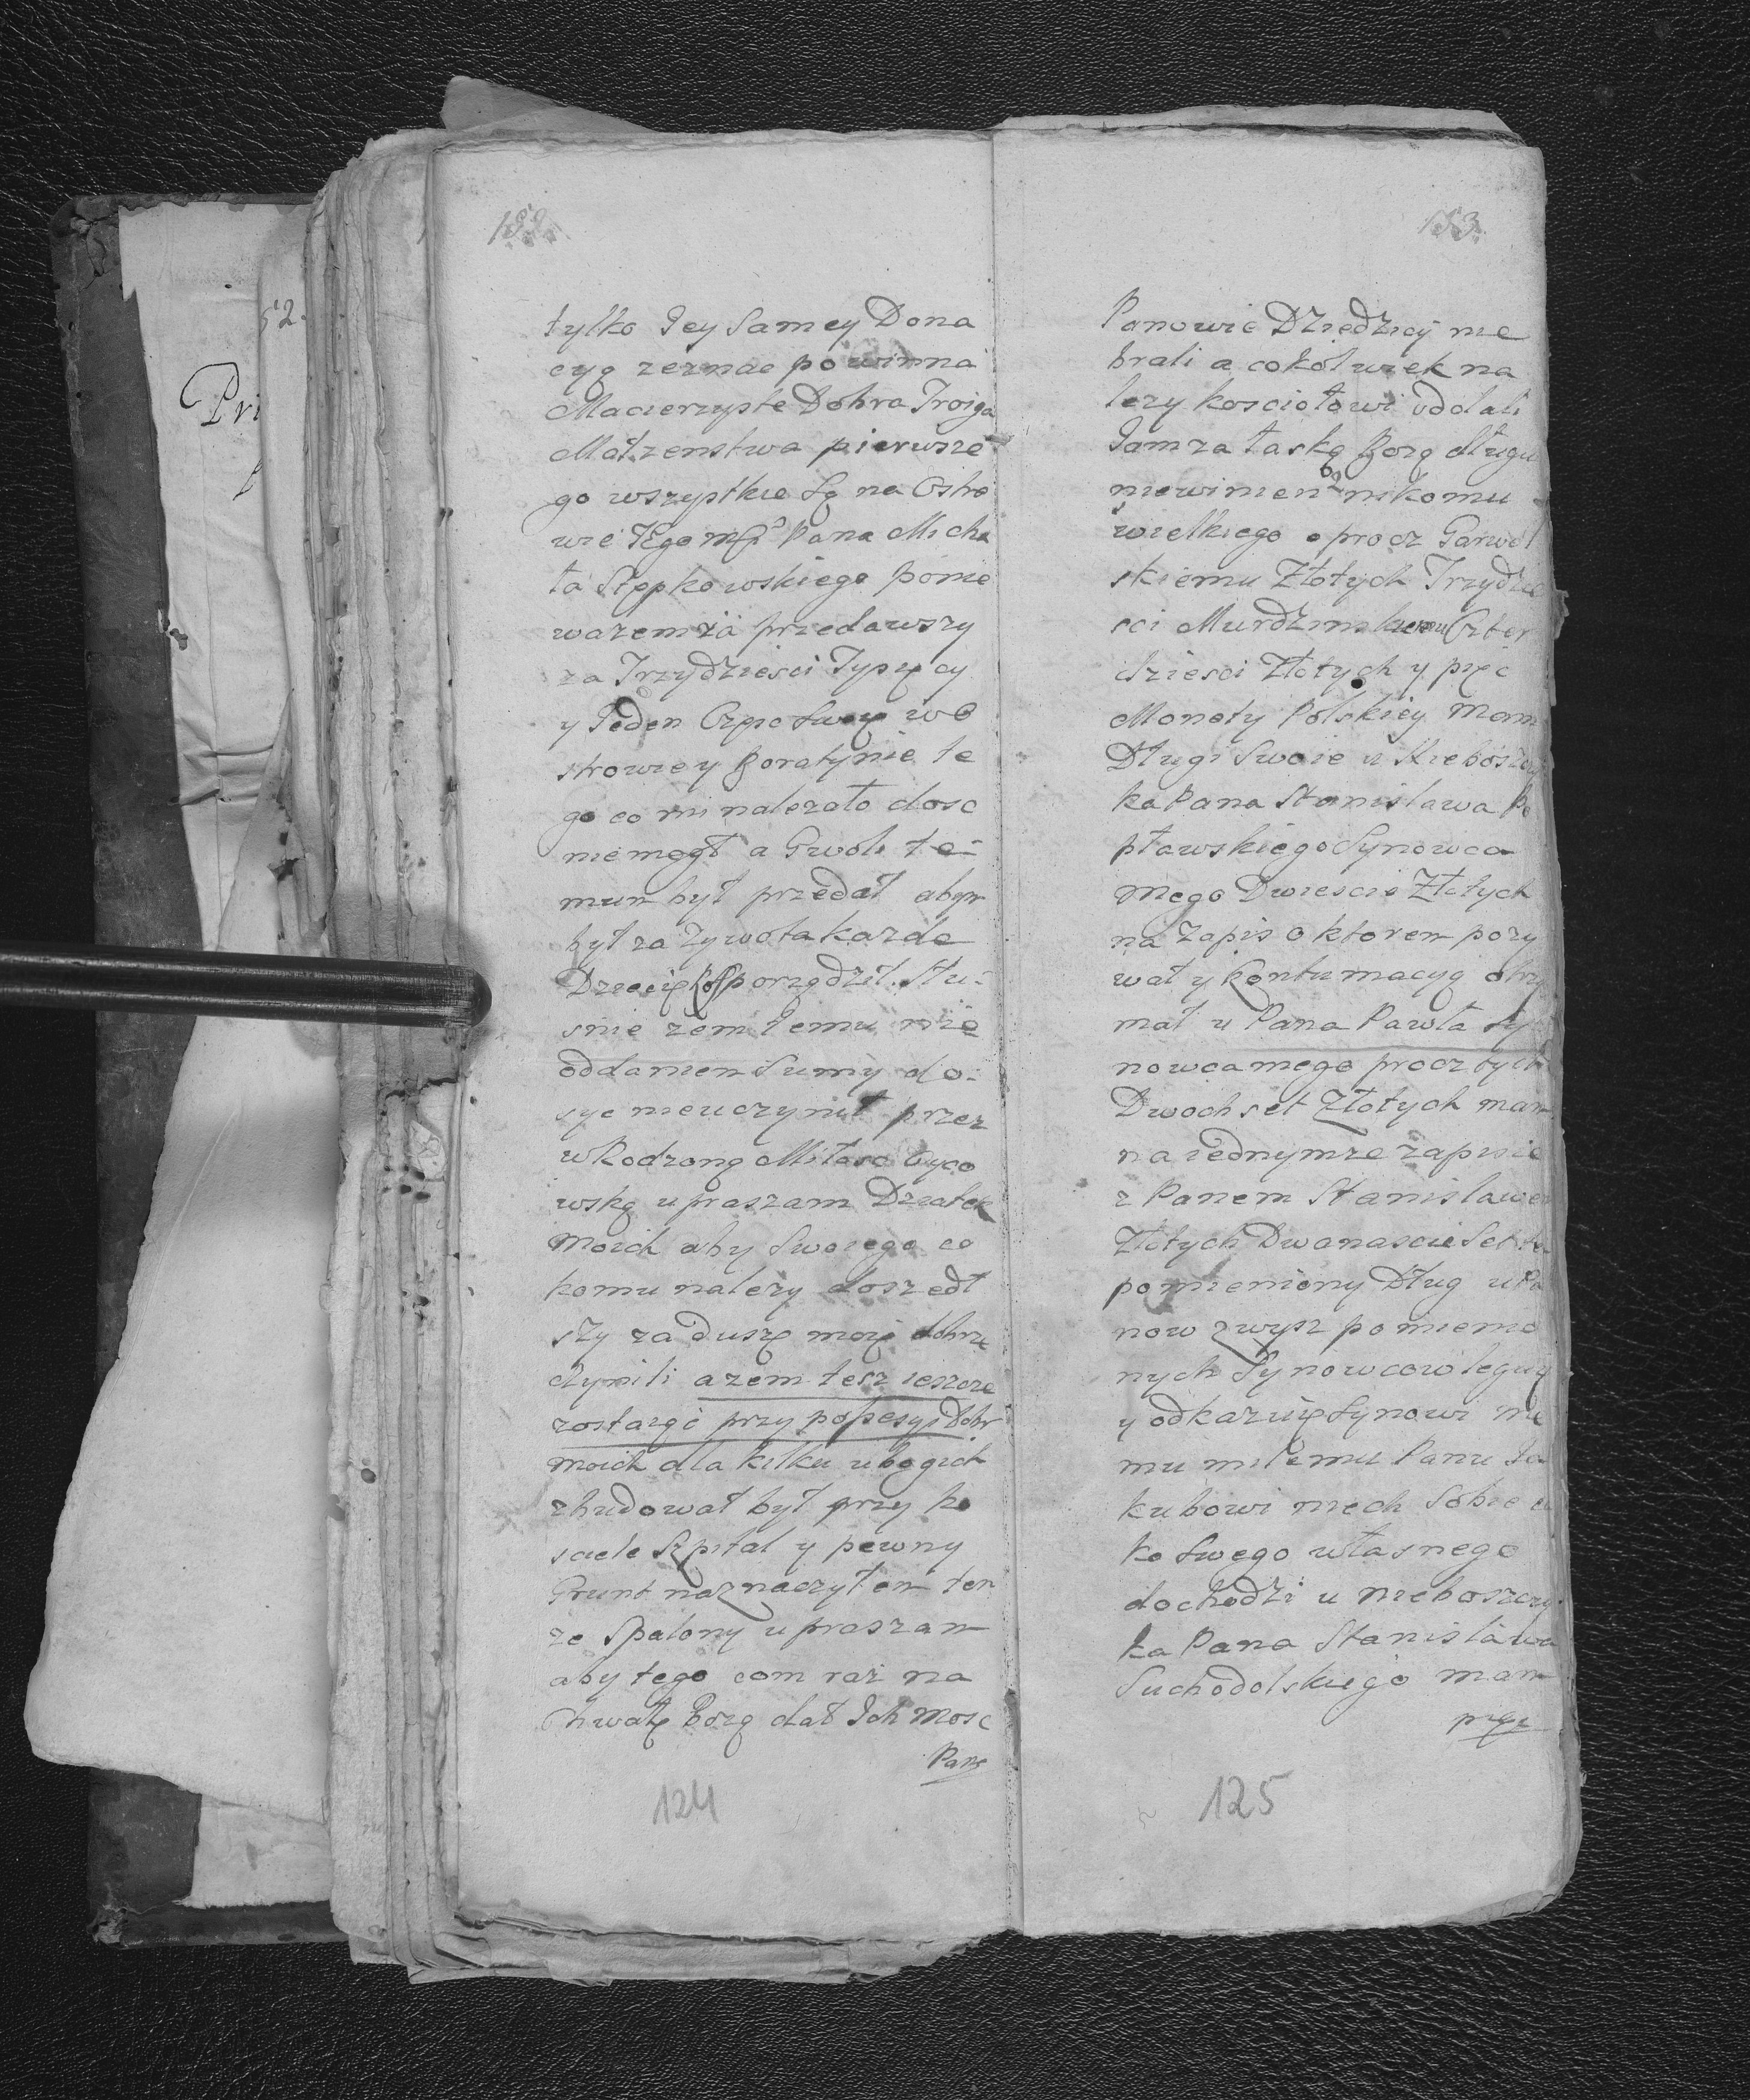 152.
tylko Jey Samey Dona
cyą zeznac powinna
Macierzyste Dobra Troiga
Małzenstwa pierwsze
go wszystkie Są na Ostro
wie Jego Pana Micha
ła Stępkowskiego ponie
wazem za przedawszy
za Trzydziesci Tysięcy
y Jeden Częsc Swoię w O
strowie y Boratynie te
go co mi nalezało dosc
niemogł a Gwoli te-
mum był przedał abym
był za Zywota kazde
Dziecię rosporządził. Słu-
snie zem Jemu nie
oddaniem Sumy do-
syc nieuczynił przez
wRodzoną Miłosc Oyco
wską upraszam Dziatek
Moich aby Swoiego co
komu nalezy doszedł
szy za duszę moię dobrze
czynili azem tesz ieszcze
zostaiąc przy possesyi Dobr
moich dla kilku ubogich
zbudował był przy ko
sciele Szpital y pewny
Grunt naznaczyłem ten
ze Spalony upraszam
aby tego com raz na
Chwałę Bozą dał Ich Mosc
Pano
124
153.
Panowie Dziedzicy nie
brali a cokolwiek na
lezy kosciołowi oddali
Jam za łaską Bozą długu
niewinien nikomu
wielkiego oprocz Garwol
skiemu Złotych Trzydzie
sci Murdzinskiemu Czter
dziesci Złotych y pięc
Monety Polskiey Mam
Długi Swoie u Nieboszczy
ka Pana Stanislawa Po
pławskiego Synowca
mego Dwiescie Złotych
na Zapis o ktorem pozy
wał y Kontumacyą otrzy
mał u Pana Pawła Sy
nowca mego procz tych
Dwoch set Złotych mam
na iednymze zapisie
z Panem Stanislawem
Złotych Dwanascie Set te
pomieniony Dług u Pa
now zwysz pomienio
nych Synowcow leguię
y odkazuię Synowi me
mu miłemu Panu Ja
kubowi niech Sobie ia
ko Swego własnego
dochodzi u nieboszczy
ka Pana Stanisława
Suchodolskiego mam
125
52.
Pri